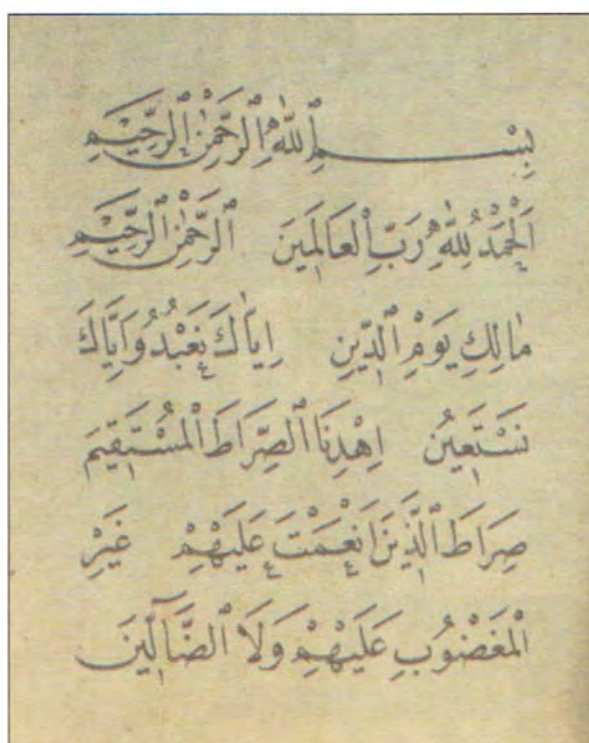 بِسْمِ ٱللّٰهِ ٱلرَّحْمٰنِ ٱلرَّحِيْمِ
اَلْحَمْدُ لِلّٰهِ رَبِّ ٱلْعَالَمِينَ ٱلرَّحْمٰنِ ٱلرَّحِيْمِ
مٰالِكِ يَوْمِ ٱلدِّينِ اِيَّاكَ نَعْبُدُ وَاِيَّاكَ
نَسْتَعِينُ اِهْدِنَا ٱلصِّرَاطَ ٱلْمُسْتَقِيمَ
صِرَاطَ ٱلَّذِينَ اَنْعَمْتَ عَلَيْهِمْ غَيْرِ
ٱلْمَغْضُوبِ عَلَيْهِمْ وَلَا ٱلضَّآلِّينَ